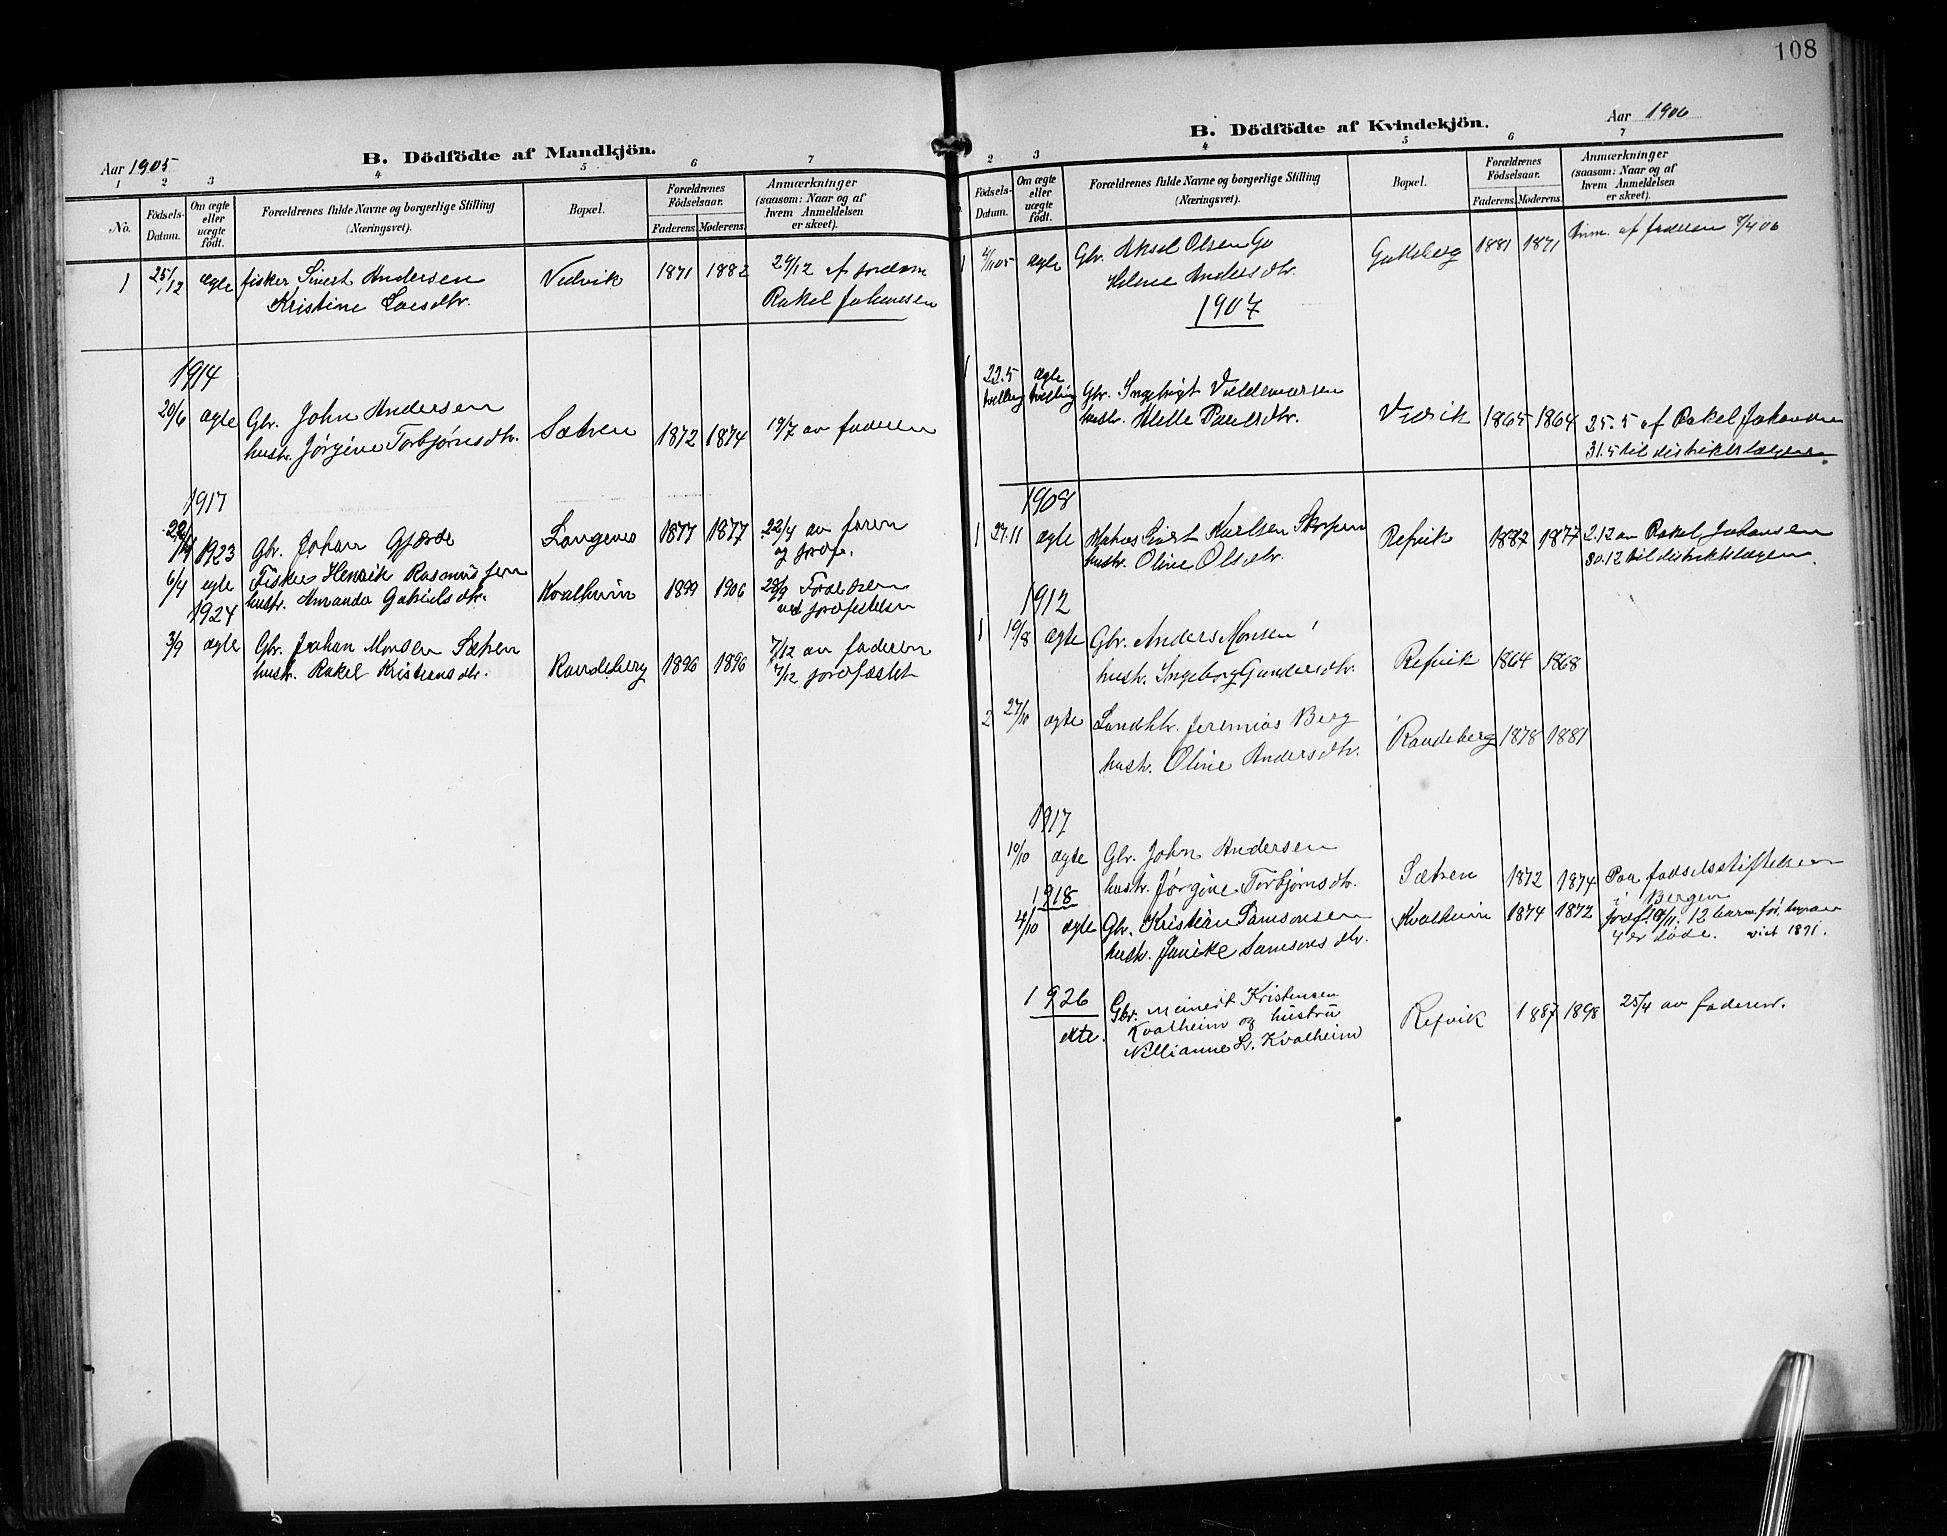 108
Aar 1905
B. Dödfödte af Mandkjön.
1 2 3 4 5 6 7
No.
Födsels-Datum.
Om ægte eller uægte födt.
Forældrenes fulde Navne og borgerlige Stilling (Næringsvei).
Bopæl.
Forældrenes Födselsaar.
Faderens. Moderens.
Anmærkninger (saasom: Naar og af hvem Anmeldelsen er skeet).
1 25/12 ægte fisker Sivert Andersen Vedvik 1871 1882 29/12 af jordem
Kristine Larsdtr. Rakel Johansen
1914
20/6 ægte Gbr. John Andersen Sætren 1872 1874 19/7 av faderen
hustr. Jørgine Torbjørnsdtr.
1917
Gbr. Johan Gjærde Langenes 1877 1877 22/4 av faren
og prof.
1923
6/4 egte Fisker Henrik Rasmussen Kvalheim 1899 1906
hustr. Amanda Gabrielsdtr.
1924
3/9 ægte Gbr. Johan Monsen Sætren Randeberg 1896 1896 7/12 av faderen
hustr. Rakel Kristiansdtr. 7/12 profastet
Aar 1906
B. Dödfödte af Kvindekjön.
2 3 4 5 6 7
Födsels-Datum.
Om ægte eller uægte födt.
Forældrenes fulde Navne og borgerlige Stilling (Næringsvei).
Bopæl.
Forældrenes Födselsaar.
Faderens. Moderens.
Anmærkninger (saasom: Naar og af hvem Anmeldelsen er skeet).
1 4/1105 ægte Gbr. Aksel Olsen 1881 1871 af faderen 8/4 06
Helene Andersdtr.
1907
1 22.5 ægte Gbr. Ingebrigt Valdemarsen Vedvik 1865 1864 25.5 af Rakel Johansen
tvilling tvilling hustr. Paulsdtr. 31.5 til distriktslægen
1908
1 27.11 ægte Sivert Karlsen Skorpen Refvik 1887 1877 2.12 av Rakel Johansen
hustr. Oline Olsdtr. 30.12 til distriktslægen
1912
1 19/8 ægte Gbr. Anders Monsen Refvik 1864 1868
hustr. Ingeborg Gundersdtr.
2 27/10 ægte Landhr. Jeremias Berg Randeberg 1878 1881
hustr. Oline Andersdtr.
1917
19/10 ægte Gbr. John Andersen Sætren 1872 1874 Paa fødselsstiftelsen
hustr. Jørgine Torbjørnsdtr. i Bergen
1918
4/10 ægte Gbr. Kristian Samsonsen Kvalheim 1874 1872 12 barn før, hvorav
hustr. Janike Samsonsdtr. 4 er døde. viet 1891.
1926
ekte. Gbr. Meinert Kristensen Refvik 1887 1898 25/4 av faderen.
Kvalheim og hustru
Nillianne L. Kvalheim